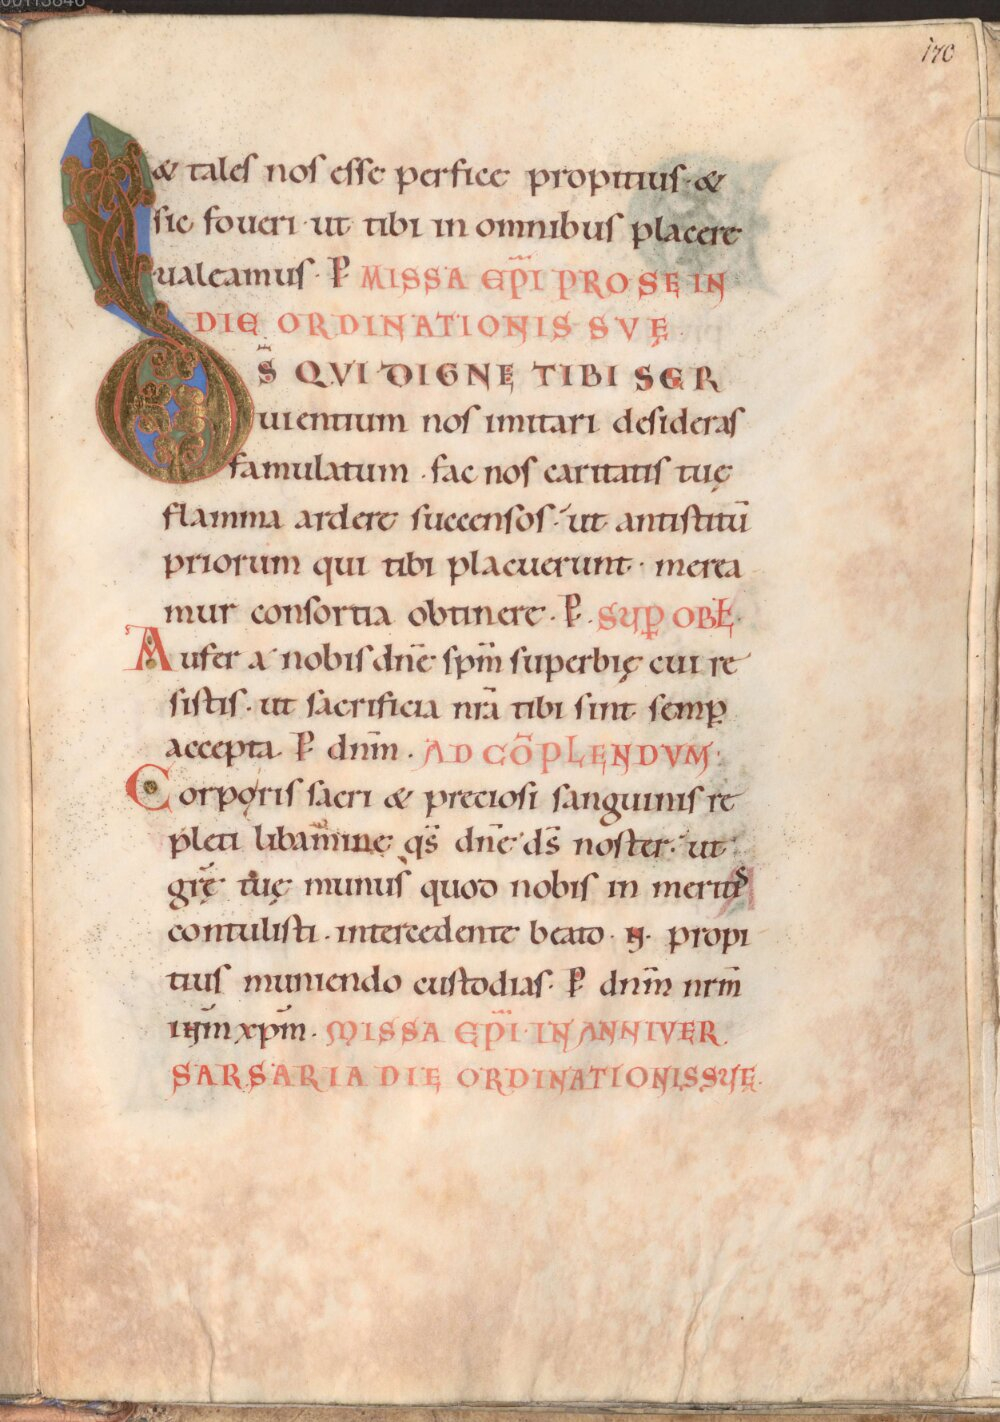 170
& tales nos esse perfice propitius · &
sic foueri · ut tibi in omnibus placere
ualeamus · P̄ MISSA EP̄I PRO SE IN
DIE ORDINATIONIS SVĘ
D̄S QVI DIGNE TIBI SER
uientium nos imitari desideras
famulatum · fac nos caritatis tuę
flamma ardere succensos · ut antistitū
priorum qui tibi placuerunt · merea
mur consortia obtinere · P̄ · SUP̱ OBĒ
Aufer a nobis dn̄e sp̄m superbię cui re
sistis · ut sacrificia nr̄a tibi sint semp̱
accepta · P̄ dn̄m · AD CŌPLENDVM ·
Corporis sacri & preciosi sanguinis re
pleti libamine qs̄ dn̄e ds̄ noster · ut
gr̄ę tuę munus quod nobis in meritis
contulisti · intercedente beato · N̄ · propi
tius muniendo custodias · P̄ dn̄m nr̄m
ihm̄ xp̄m · MISSA EP̄I · IN ANNIVER
SARSARIA DIE ORDINATIONIS SUĘ ·